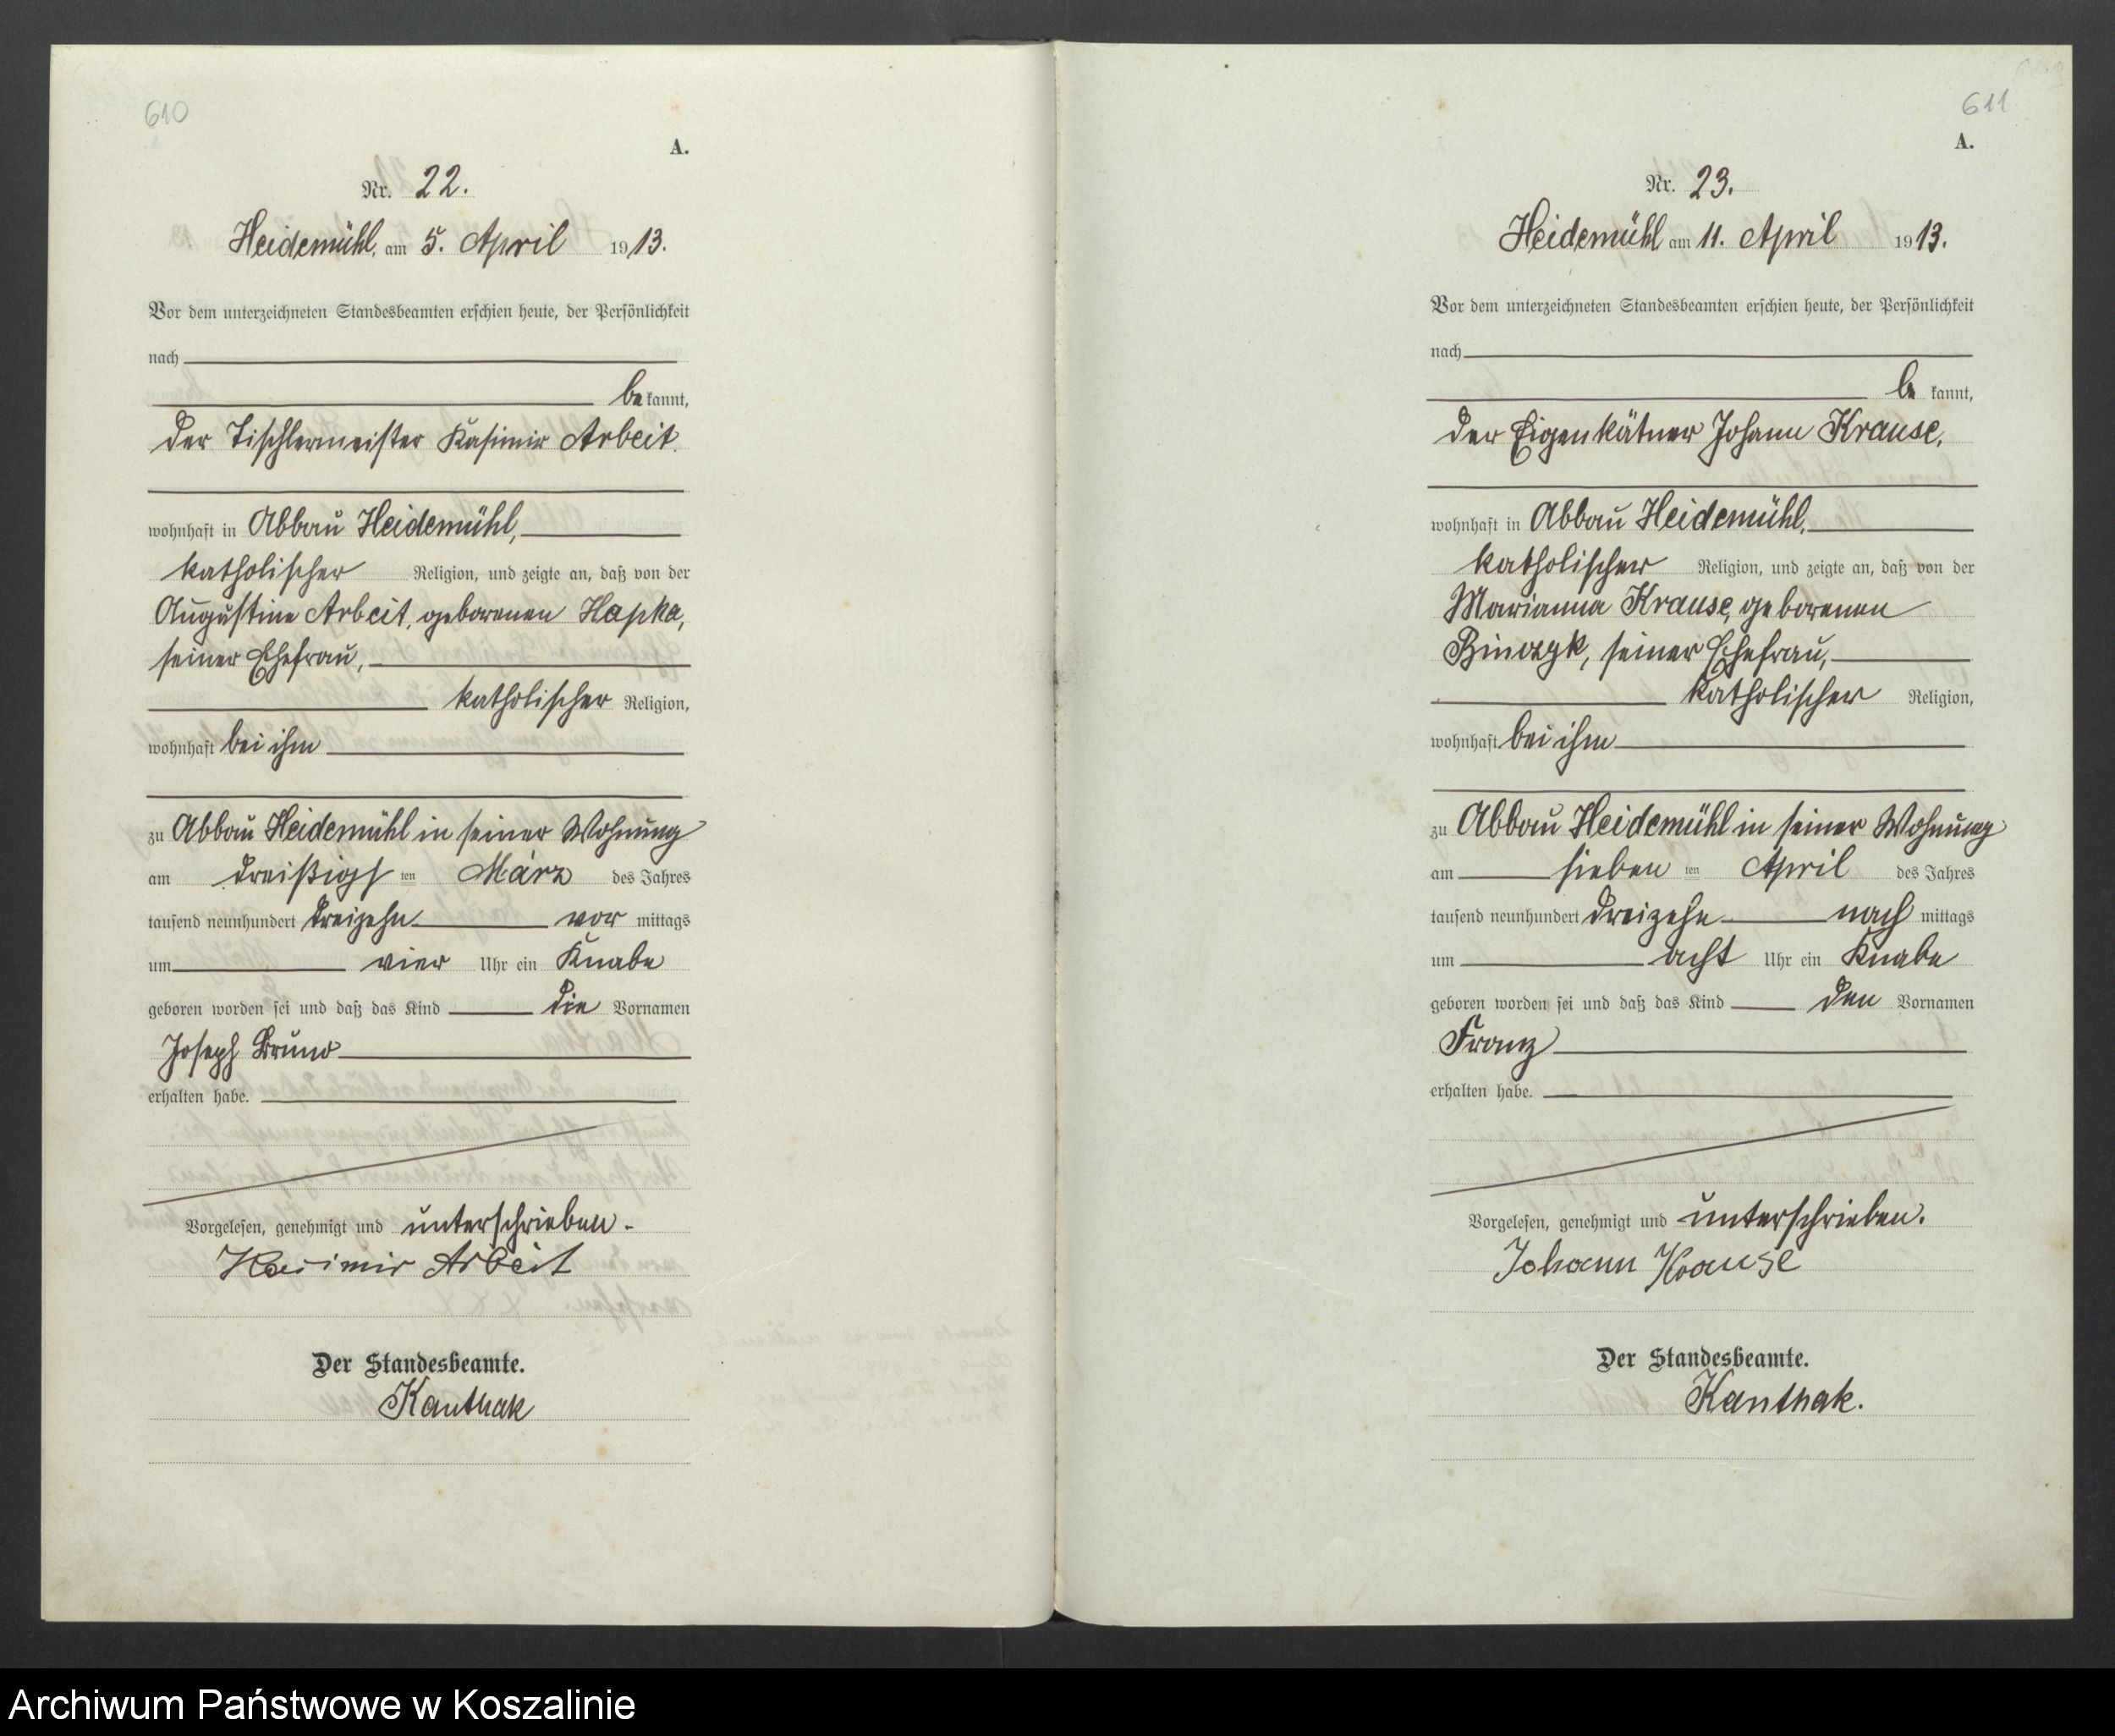 610
A.
Nr. 22.
Heidemühl, am 5. April 1913.
Vor dem unterzeichneten Standesbeamten erschien heute, der Persönlichkeit
nach
be kannt,
der Tischlermeister Kasimir Arbeit.
wohnhaft in Abbau Heidemühl,
katholischer Religion, und zeigte an, daß von der
Augustine Arbeit, geborenen Hapka,
seiner Ehefrau,
katholischer Religion,
wohnhaft bei ihm
zu Abbau Heidemühl in seiner Wohnung
am dreißigsten März des Jahres
tausend neunhundert dreizehn vor mittags
um vier Uhr ein Knabe
geboren worden sei und daß das Kind die Vornamen
Joseph Bruno
erhalten habe.
Vorgelesen, genehmigt und unterschrieben.
Kasimir Arbeit
Der Standesbeamte.
Kanthak
611
A.
Nr. 23.
Heidemühl am 11. April 1913.
Vor dem unterzeichneten Standesbeamten erschien heute, der Persönlichkeit
nach
be kannt,
der Eigenkätner Johann Krause,
wohnhaft in Abbau Heidemühl,
katholischer Religion, und zeigte an, daß von der
Marianna Krause, geborenen
Binczyk, seiner Ehefrau,
katholischer Religion,
wohnhaft bei ihm
zu Abbau Heidemühl in seiner Wohnung
am sieben ten April des Jahres
tausend neunhundert dreizehn nach mittags
um acht Uhr ein Knabe
geboren worden sei und daß das Kind den Vornamen
Franz
erhalten habe.
Vorgelesen, genehmigt und unterschrieben.
Johann Krause
Der Standesbeamte.
Kanthak.
Archiwum Państwowe w Koszalinie